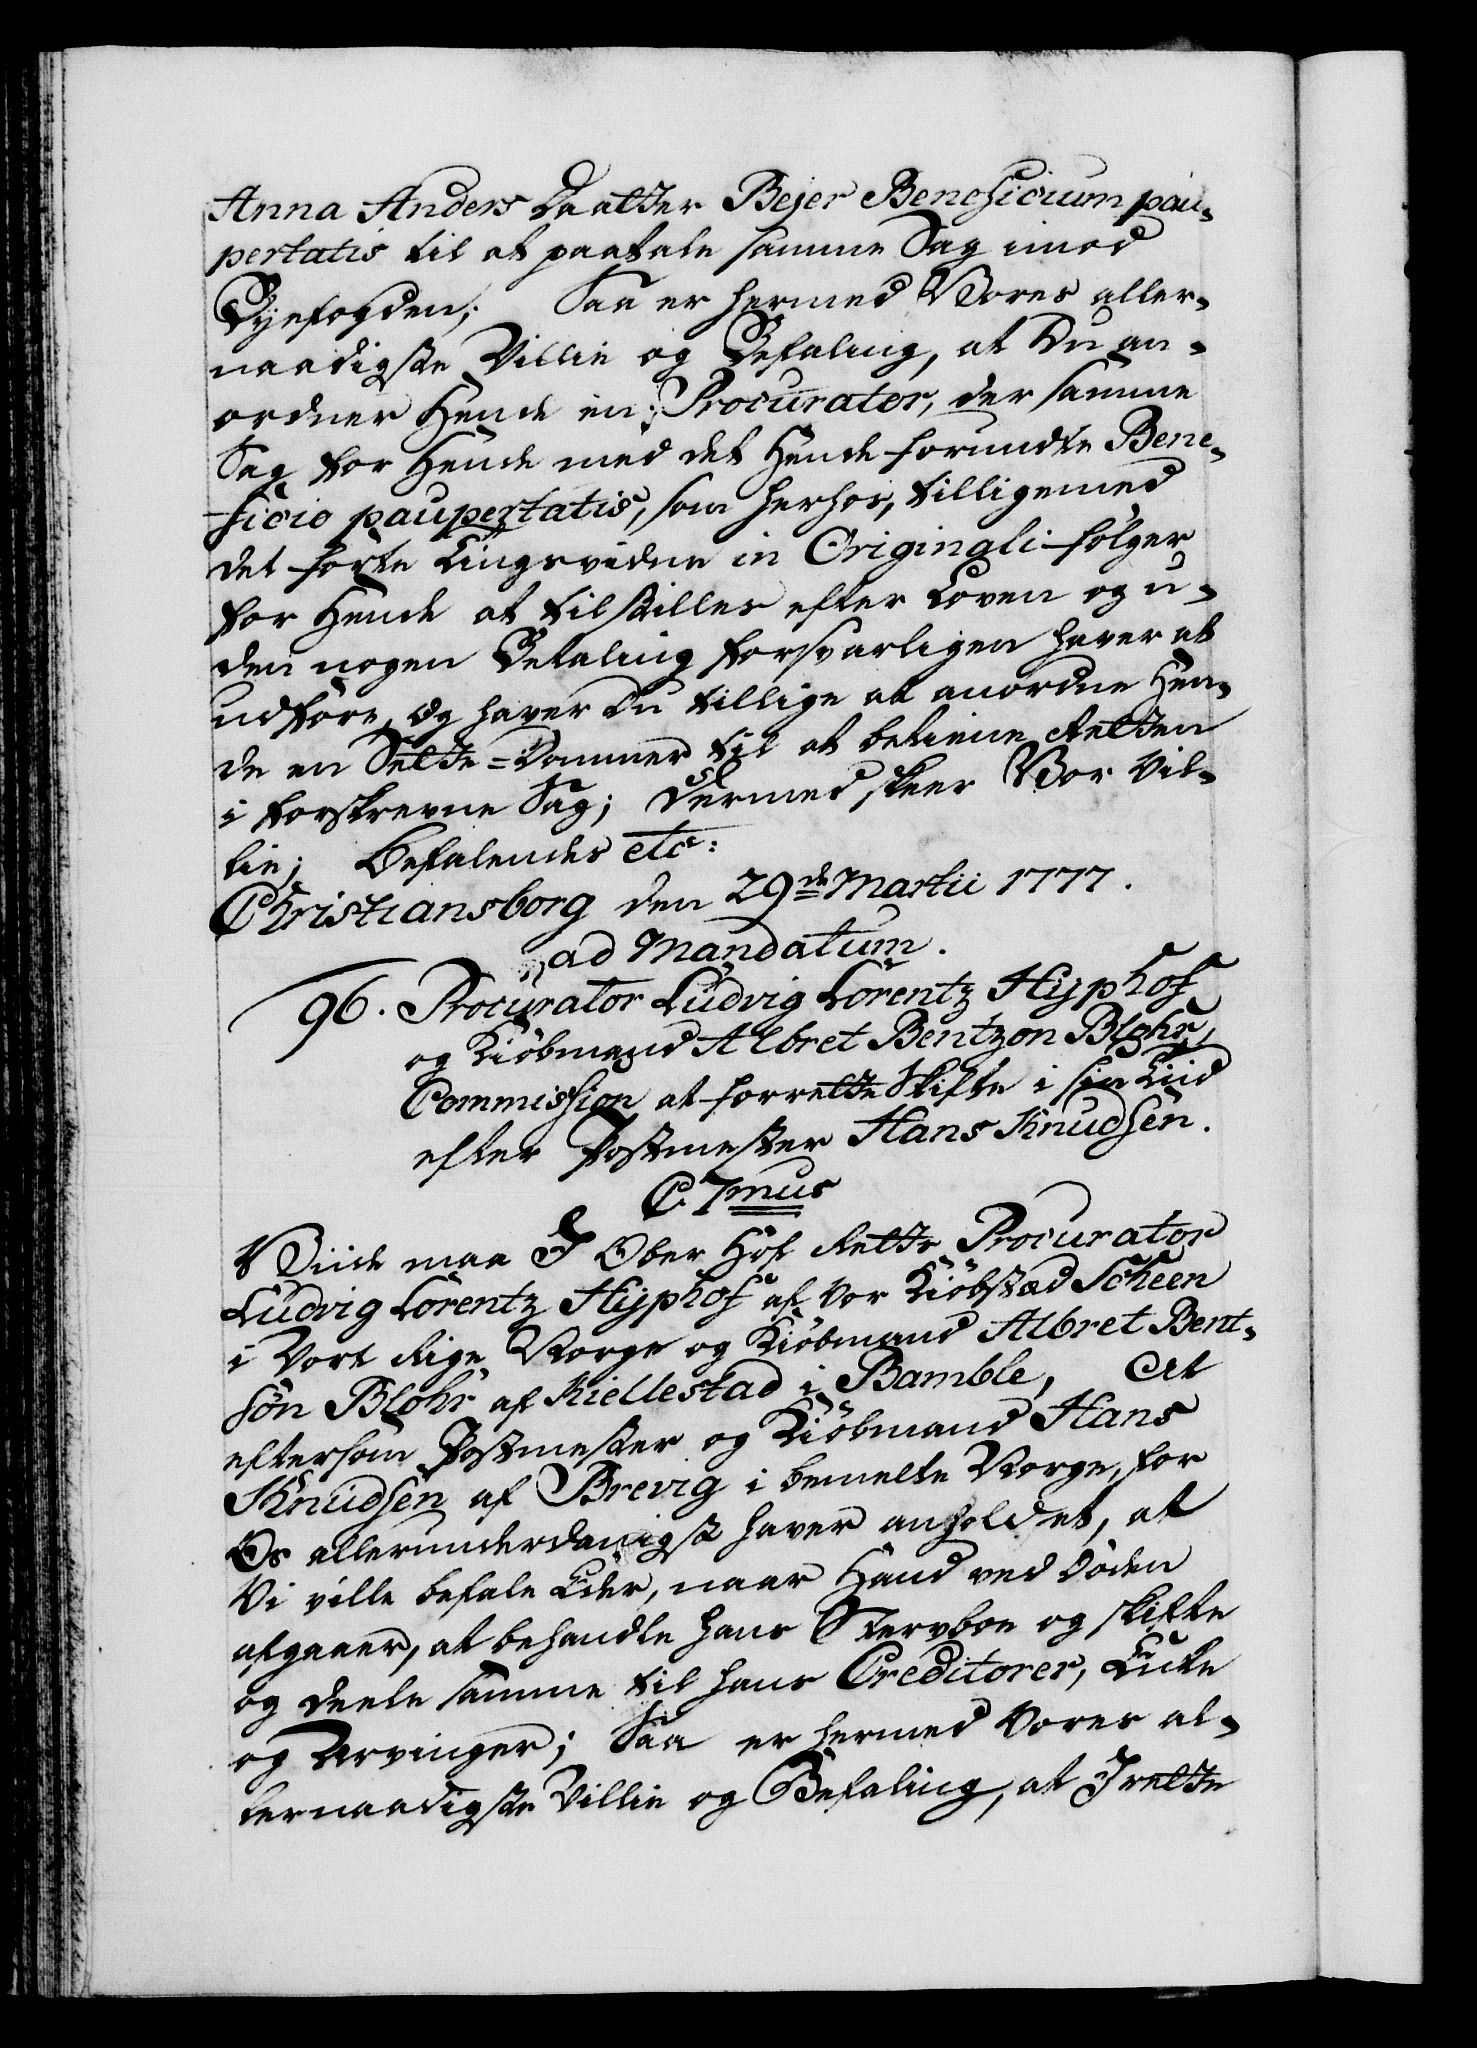 Anna Anders Daatter Bejer Beneficium pau-
pertatis til at paatale samme Sag imod
Byefogden; Saa er hermed Vores aller-
naadigste Villie og Befaling, at Du an-
ordner Hende en Procurator, der samme
Sag for Hende med det Hende forundte Bene-
ficio paupertatis, som herhos, tilligemed
det førte Tingsvidne in Originali følger
for Hende at tilstilles efter Loven og u-
den nogen Betaling forsvarligen haver at
udføre, Og haver Du tillige at anordne Hen-
de en Sette-Dommer til at betiene Retten
i forskrevne Sag; Dermed skeer Vor Vil-
lie; Befalendes etc:
Christiansborg den 29de Martii 1777.
ad Mandatum.
96. Procurator Ludvig Lorentz Hyphof
og Kiøbmand Albret Bentzon Blohr,
Commission at forrette Skifte i sin Tiid
efter Postmester Hans Knudsen.
C. 7mus
Viide maa I Ober Hof Rette Procurator
Ludvig Lorentz Hyphof af vor Kiøbstad Scheen
i Vort Rige Norge og Kiøbmand Albret Bent-
søn Blohr af Kiellestad i Bamble, At
eftersom Postmester og Kiøbmand Hans
Knudsen af Brevig i bemelte Norge, for
Os allerunderdanigst haver anholdet, at
Vi ville befale Eder, naar Hand ved Døden
afgaaer, at behandle hans Stervboe og skifte
og deele samme til hans Creditorer,
og Arvinger; Saa er hermed Vores al-
lernaadigste Villie og Befaling, at I rette